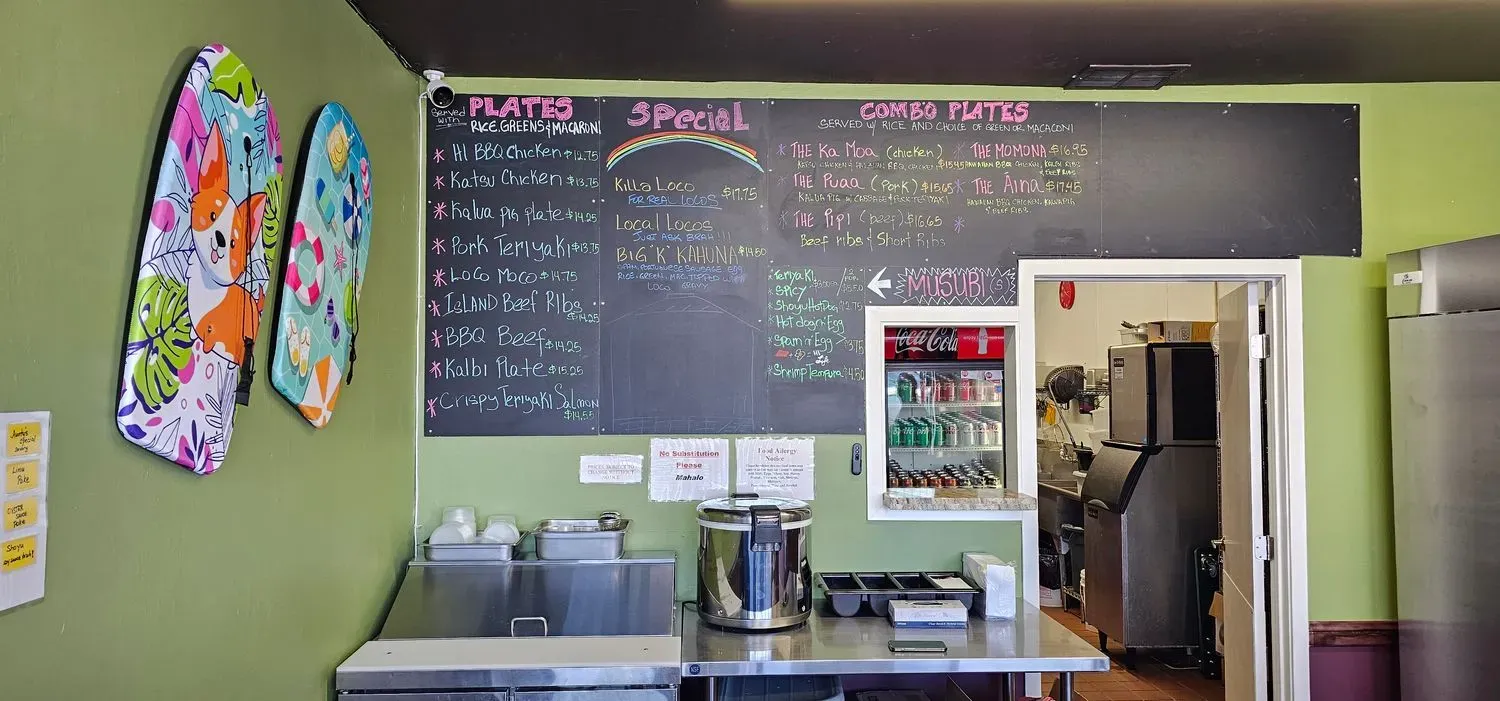 Served
with
PLATES
RICE, GREENS & MACARONI
* HI BBQ Chicken $12.75
* Katsu Chicken $13.75
* Kalua pig plate $14.25
* Pork Teriyaki $13.75
* Loco Moco $14.75
* ISLAND Beef RIbs
$14.25
* BBQ Beef $14.25
* Kalbi Plate $15.25
* Crispy Teriyaki Salmon
$14.55
SPeciaL
Killa Loco $17.75
FOR REAL LOCOS
Local Locos
JUST ASK BRAH!!!!
BIG 'K' KAHUNA $14.50
SPAM, PORTUGUESE SAUSAGE, EGG
RICE, GREEN, MAC, TOPPED WITH
LOCO GRAVY
COMBO PLATES
SERVED W/ RICE AND CHOICE OF GREEN OR MACARONI
* THE Ka Moa (chicken)
KATSU CHICKEN & HAWAIIAN BBQ CHICKEN $15.45
* THE Puaa (Pork) $15.65
KALUA PIG W/ CABBAGE & PORK TERIYAKI
* THE Pipi (beef) $16.65
Beef ribs & Short Ribs
* THE MOMONA $16.95
HAWAIIAN BBQ CHICKEN, KALBI RIBS
& BEEF RIBS
* THE Áina $17.45
HAWAIIAN BBQ CHICKEN, KALUA PIG
& BEEF RIBS
*
* Teriyaki
* SPICY
* Shoyu Hot Dog $2.75
* Hot dog 'n' Egg
* Spam 'n' Egg $3.75
* Shrimp Tempura $4.50
MUSUBI (S)
Coca-Cola
PRICES SUBJECT TO
CHANGE WITHOUT
NOTICE
No Substitution
Please
Mahalo
Food Allergy
Notice
Aunty's
Special
Limu
Poke
OYSTER
Sauce
Poke
Shoyu
NSF